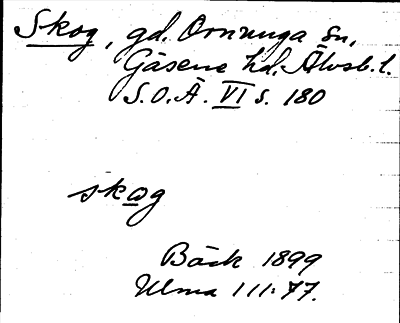 Skog, gd. Ornunga sn,
Gäsene hd. Älvsb. l.
S.O.Ä. VI s. 180
skog
Bäck 1899
Ulma 111:77.